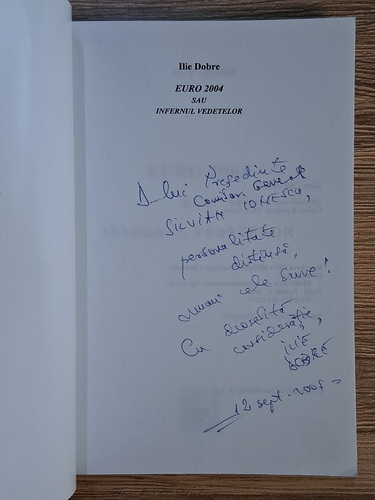 Ilie Dobre
EURO 2004
SAU
INFERNUL VEDETELOR
D-lui Președinte
Comisar General
SILVIAN IONESCU,
personalitate
distinsă,
numai cele bune!
Cu deosebită
considerație,
ILIE
DOBRE
12 sept. 2005